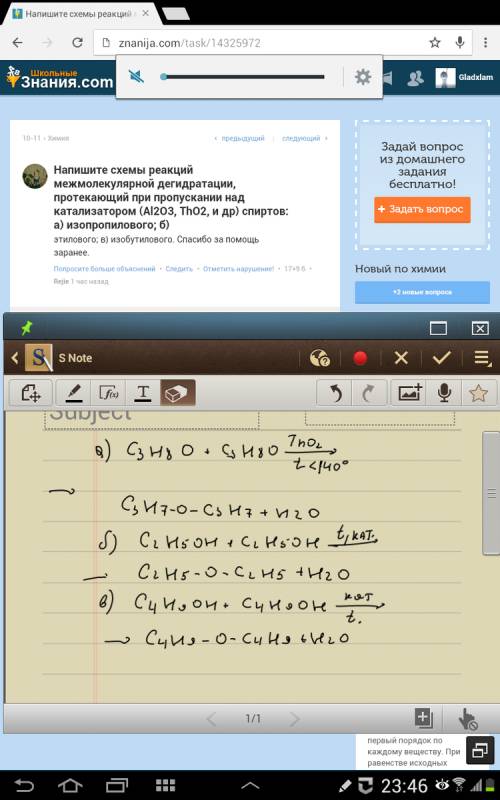 Напишите схемы реакций
znanija.com/task/14325972
Школьные
Знания.com
Gladxlam
10-11 › Химия
‹ предыдущий
следующий ›
Напишите схемы реакций
межмолекулярной дегидратации,
протекающий при пропускании над
катализатором (Al2O3, ThO2, и др) спиртов:
а) изопропилового; б)
этилового; в) изобутилового. Спасибо за помощь
заранее.
Попросите больше объяснений • Следить • Отметить нарушение! • 17+9 б •
Rejie 1 час назад
Задай вопрос
из домашнего
задания
бесплатно!
+ Задать вопрос
Новый по химии
+2 новые вопроса
S Note
Subject
а) C3H8O + C3H8O ThO2
t<140°
→ C3H7-O-C3H7 + H2O
б) C2H5OH + C2H5OH t, кат.
→ C2H5-O-C2H5 + H2O
в) C4H9OH + C4H9OH кат
t.
→ C4H9-O-C4H9 + H2O
1/1
первый порядок по
каждому веществу. При
равенстве исходных
23:46